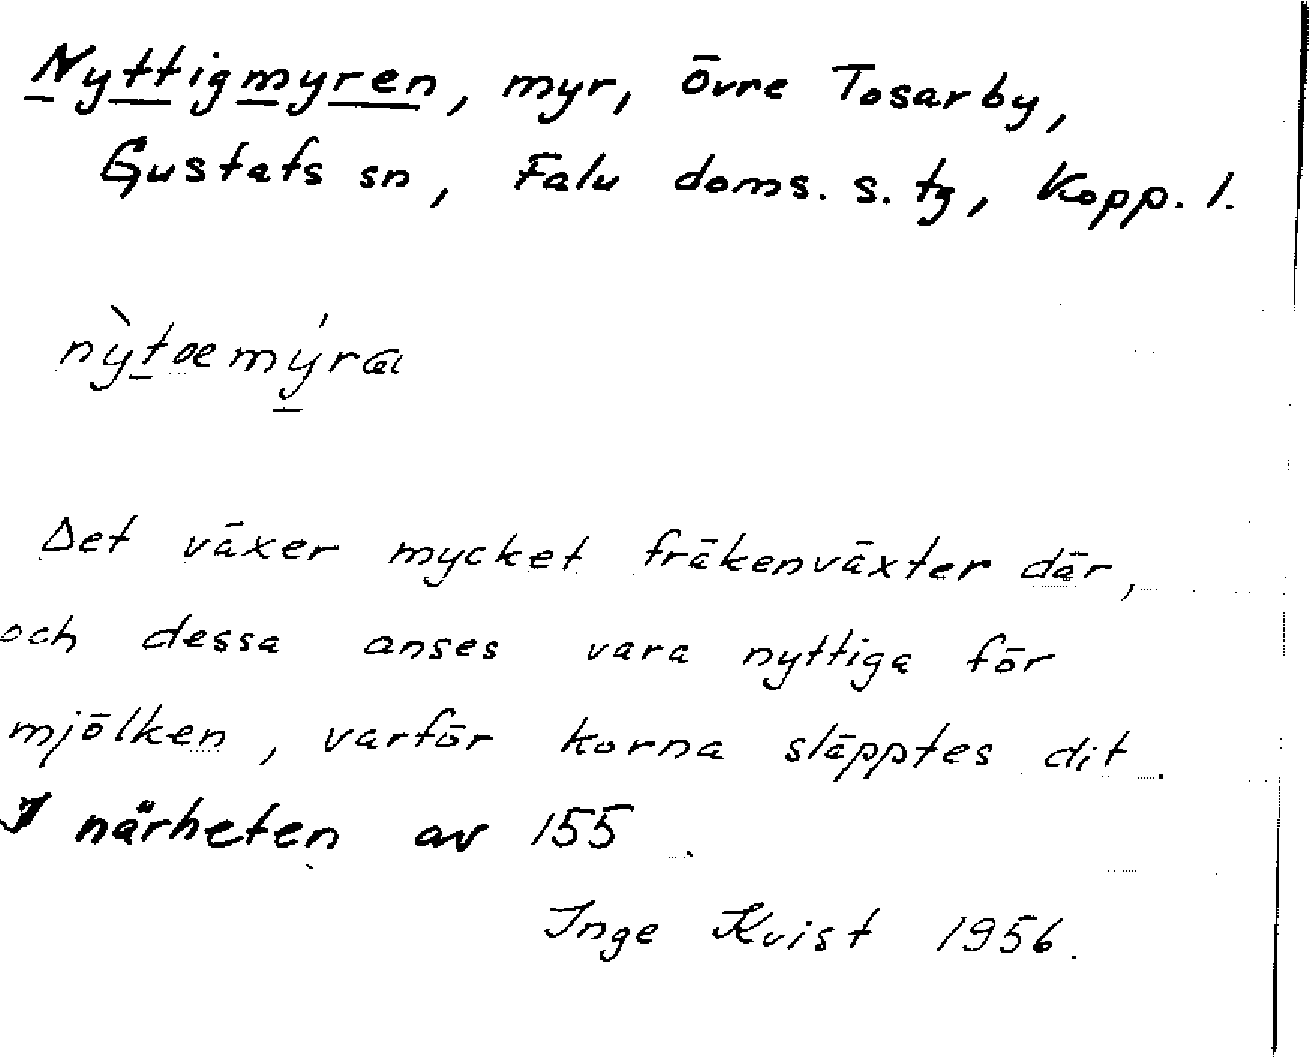 Nyttigmyren, myr, Övre Tosarby,
Gustafs sn, Falu doms. s. tg, Kopp. l.
nỳtæmýra
Det växer mycket fräkenväxter där,
och dessa anses vara nyttiga för
mjölken, varför korna släpptes dit.
I närheten av 155.
Inge Kvist 1956.